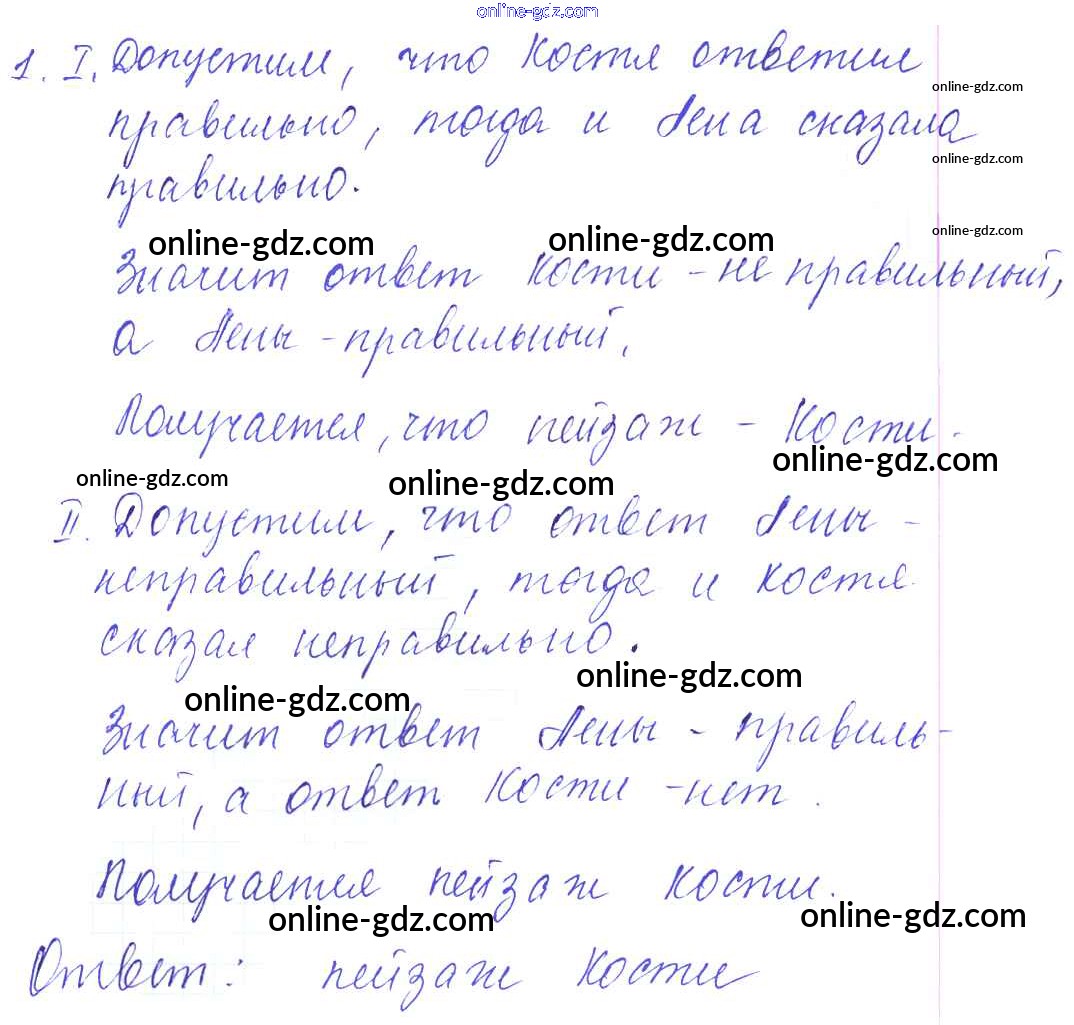 online-gdz.com
1. I. Допустим, что Костя ответил
online-gdz.com
правильно, тогда и Лена сказала
online-gdz.com
правильно.
online-gdz.com
online-gdz.com online-gdz.com
Значит ответ Кости - не правильный,
а Лены - правильный.
Получается, что пейзаж - Кости.
online-gdz.com
online-gdz.com online-gdz.com
II. Допустим, что ответ Лены -
неправильный, тогда и Костя
сказал неправильно.
online-gdz.com
online-gdz.com
Значит ответ Лены - правиль-
ный, а ответ Кости - нет.
Получается пейзаж Кости.
online-gdz.com online-gdz.com
Ответ: пейзаж Кости